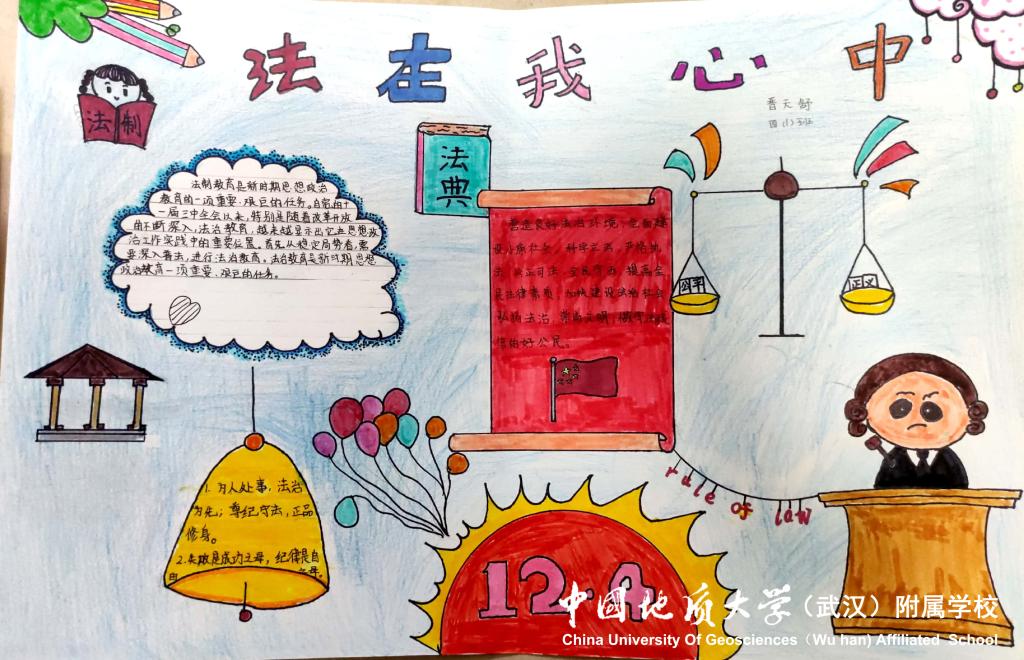 法在我心中
晋天舒
四（1）班
法制
法典
法制教育是新时期思想政治
教育的一项重要、艰巨的任务。自党的十
一届三中全会以来，特别是随着改革开放
的不断深入，法治教育，越来越显示出它在思想政
治工作实践中的重要位置。首先从稳定局势看，需
要深入普法，进行法治教育。法治教育是新时期思想
政治教育一项重要、艰巨的任务。
营造良好法治环境，全面建
设小康社会，科学立法，严格执
法，公正司法，全民守法，提高全
民法律素质，加快建设法治社会
弘扬法治，崇尚文明，
信的好公民。
公平
正义
1. 为人处事，法治
为先；尊纪守法，正品
修身。
2.失败是成功之母，纪律是自
由之母。
rule of law
12·4
中国地质大学（武汉）附属学校
China University Of Geosciences（Wu han) Affiliated School